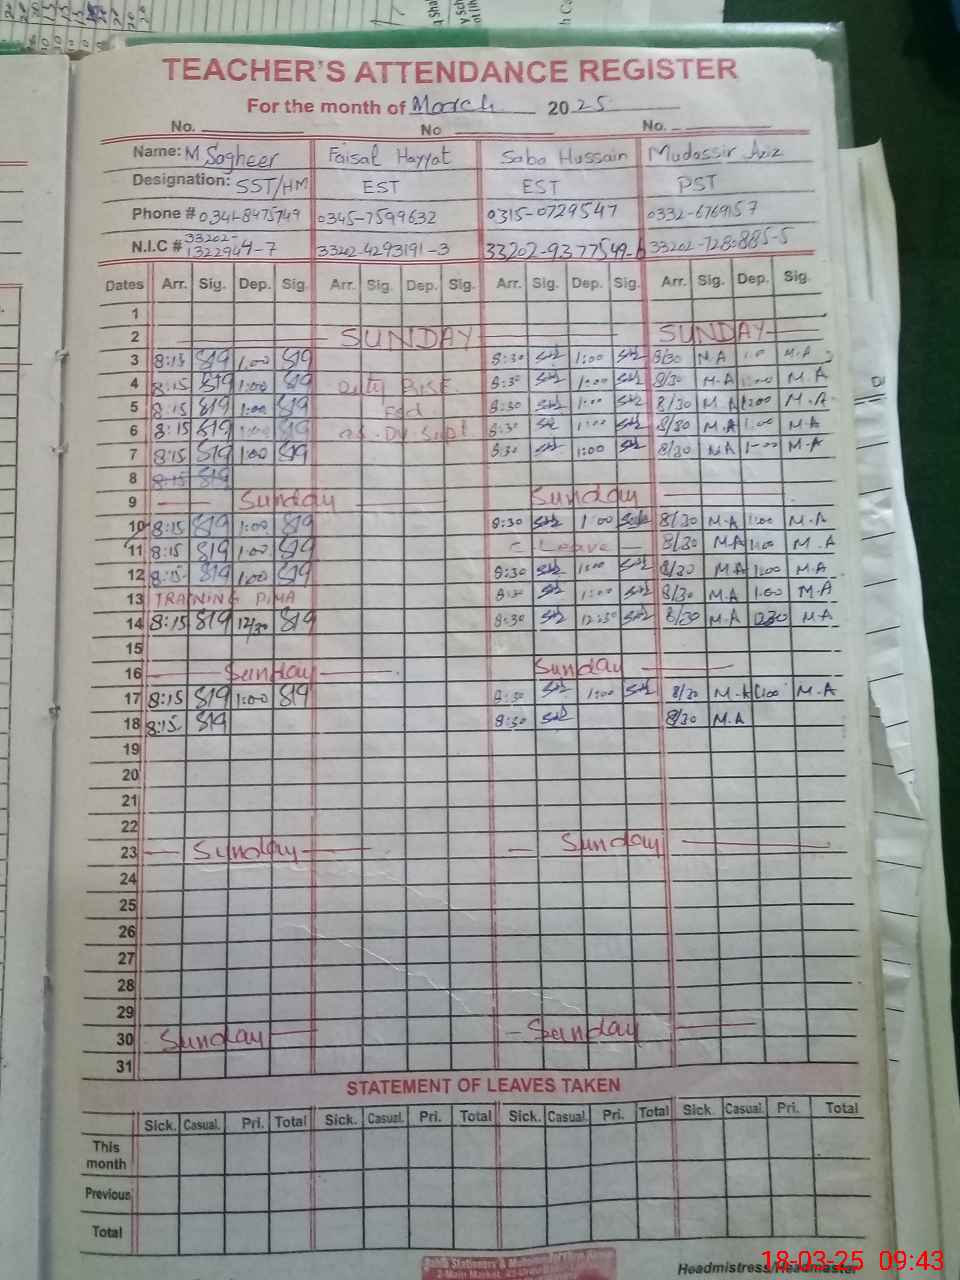 TEACHER'S ATTENDANCE REGISTER
For the month of March 2025
No. No No.
Name: M Sagheer Faisal Hayyat Saba Hussain Mudassir Aziz
Designation: SST/HM EST EST PST
Phone # 0341-8475749 0345-7599632 0315-0729547 0332-6769157
33202-
N.I.C # 1322944-7 33202-4293191-3 33202-9377549-6 33202-728088 5-5
Dates Arr. Sig. Dep. Sig. Arr. Sig. Dep. Sig. Arr. Sig. Dep. Sig. Arr. Sig. Dep. Sig.
1
2 SUNDAY SUNDAY
3 8:15 1:00 8:30 1:00 8/30 M.A 1:0 M.A
4 8:15 1:00 Duty BISE 8:30 1:00 8/30 M.A 1:00 M.A
5 8:15 1:00 Fsd. 8:30 1:00 8/30 M.A 1:00 M.A
6 8:15 1:00 as. Dy. Supt. 8:30 1:00 8/30 M.A 1:00 M.A
7 8:15 1:00 8:30 1:00 8/30 M.A 1:00 M.A
8 8:15
9 Sunday Sunday
10 8:15 1:00 8:30 1:00 8/30 M.A 1:00 M.A
11 8:15 1:00 C Leave 8/30 M.A 1:00 M.A
12 8:15 1:00 8:30 1:00 8/30 M.A 1:00 M.A
13 TRAINING PIMA 8:30 1:00 8/30 M.A 1:00 M.A
14 8:15 12/30 8:30 12:30 8/30 M.A 1230 M.A
15
16 Sunday Sunday
17 8:15 1:00 8:30 1:00 8/30 M.A 1:00 M.A
18 8:15 8:30 8/30 M.A
19
20
21
22
23 Sunday Sunday
24
25
26
27
28
29
30 Sunday Sunday
31
STATEMENT OF LEAVES TAKEN
Sick. Casual. Pri. Total Sick. Casual. Pri. Total Sick. Casual. Pri. Total Sick. Casual. Pri. Total
This
month
Previous
Total
Headmistress/Headmaster
18-03-25 09:43